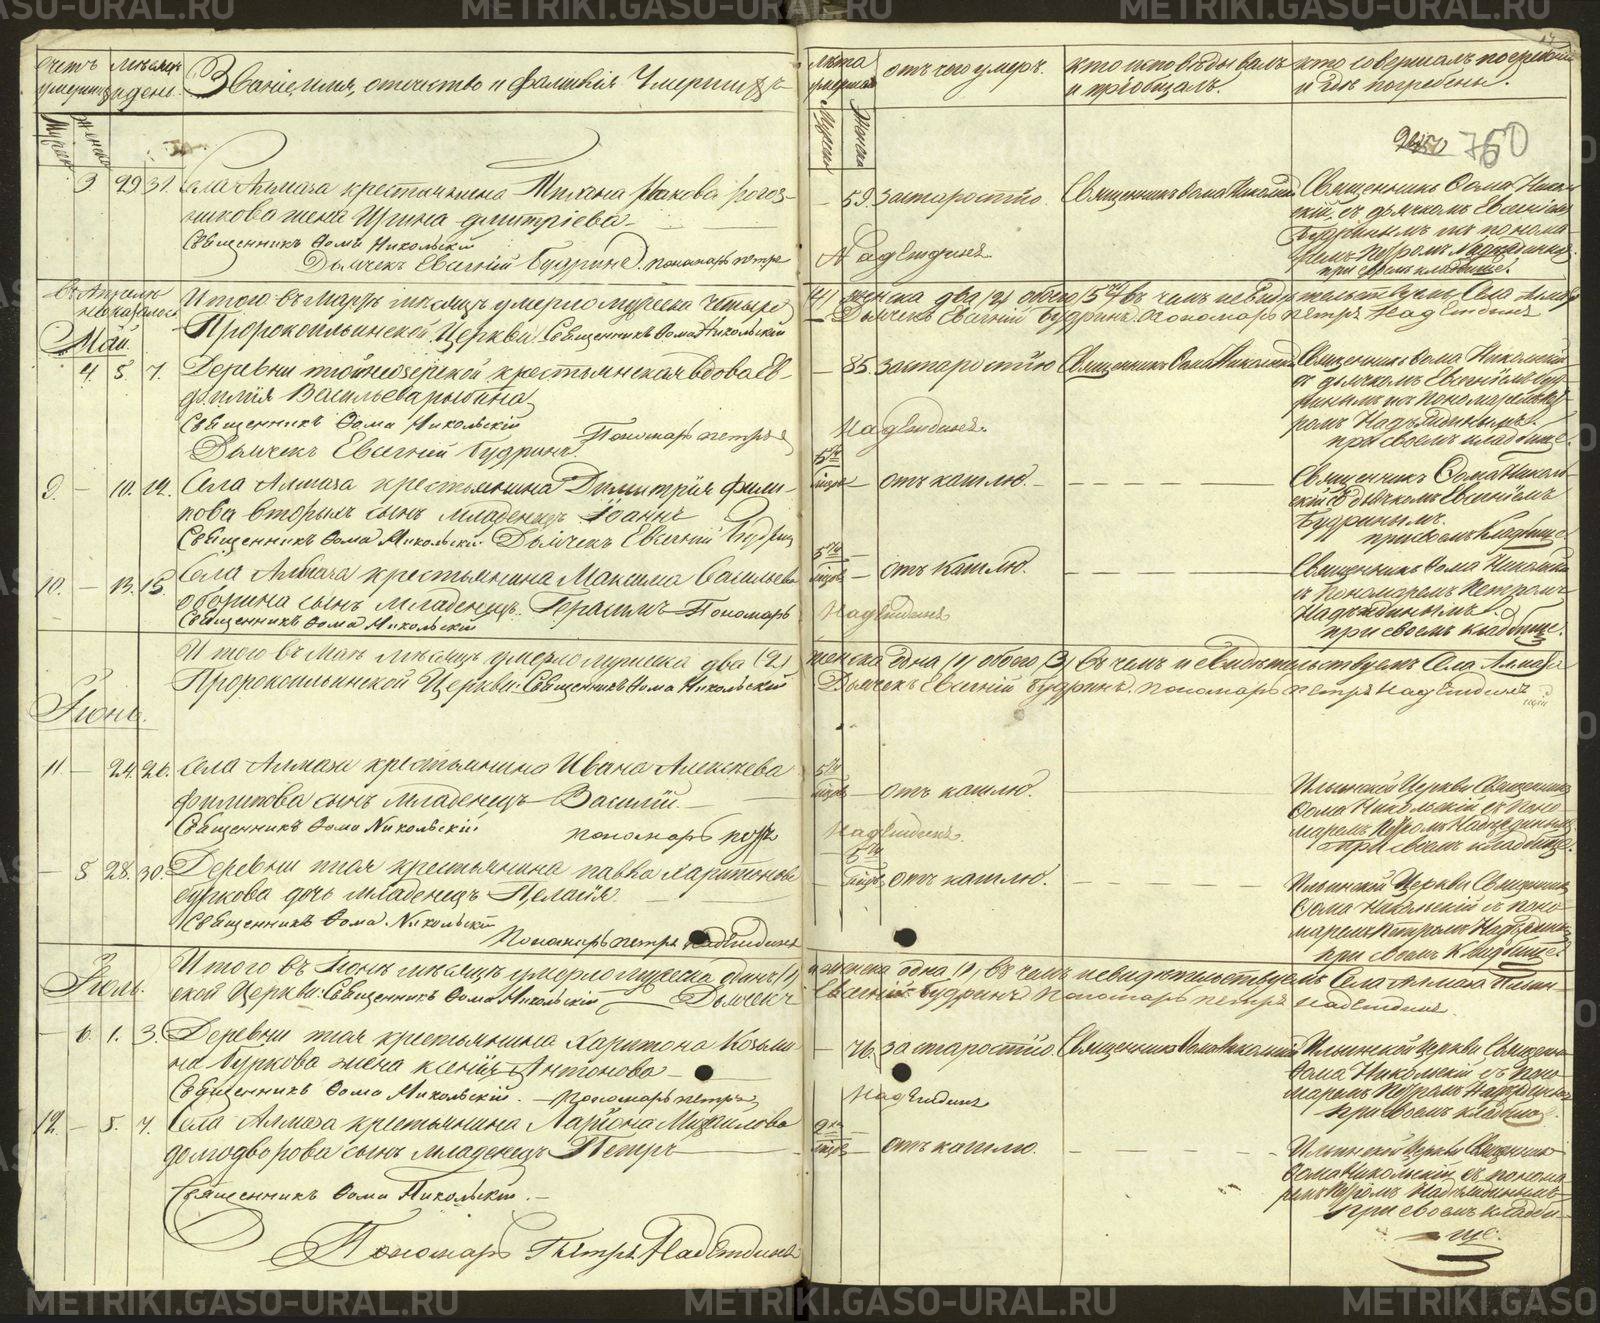 METRIKI.GASO-URAL.RU
Счетъ умершихъ
Мѣсяцъ и день
Званіе, имя, отчество и фамилія умершихъ
Лѣта умершаго
отъ чего умеръ.
кто исповѣдывалъ и пріобщалъ.
кто совершалъ погребеніе и гдѣ погребены.
Мужеск
Женска
Мужеска
Женска
750
3 29 31. Села Алмаза крестьянина
жена Ирина Димитріева
Священникъ Ѳома Никольскій
Дьячекъ Евгеній Будринъ. пономарь петръ
Надеждинъ
59. за старостію. Священникъ Ѳома Никольскій
Священникъ Ѳома Николь-
скій съ дьячкомъ Евгеніемъ
Будринымъ и понома-
ремъ Петромъ Надеждинымъ
при своемъ кладбище.
въ Апрѣлѣ не оказалось
Итого въ Мартѣ мѣсяцѣ умерло мужеска четыре (4) женска два (2) обоего
Пророкоильинской Церкви Священникъ Ѳома Никольскій Дьячекъ Евгеній Будринъ. пономарь петръ Надеждинъ
Май.
4. 5. 7. Деревни крестьянская вдова Ев-
фимія Васильева
Священникъ Ѳома Никольскій
Пономарь петръ
Дьячекъ Евгеній Будринъ.
Надеждинъ.
85. за старостію Священникъ Ѳома Никольскій
Священникъ Ѳома Никольскій
съ дьячкомъ Евгеніемъ Буд-
ринымъ и пономаремъ Пет-
ромъ Надеждинымъ.
при своемъ кладбище.
9. — 10. 12. Села Алмаза крестьянина Димитрія Фили-
пова вторымъ сынъ младенецъ Іоаннъ
Священникъ Ѳома Никольскій. Дьячекъ Евгеній Будринъ
отъ кашлю.
Священникъ Ѳома Николь-
скій съ дьячкомъ Евгеніемъ
Будринымъ.
при своемъ кладбище
10. — 13. 15. Села Алмаза крестьянина Максима Васильева
сынъ младенецъ Герасимъ Пономарь
Священникъ Ѳома Никольскій
Надеждинъ
отъ кашлю.
Священникъ Ѳома Никольскій
съ пономаремъ Петромъ
Надеждинымъ
при своемъ кладбище.
Итого въ Маѣ мѣсяцѣ умерло мужеска два (2) женска одна (1) обоего (3) въ чемъ и свидѣтельствуемъ Села Алмаза
Пророкоильинской Церкви Священникъ Ѳома Никольскій Дьячекъ Евгеній Будринъ. пономарь петръ Надеждинъ
Іюнь.
11 — 24. 26. Села Алмаза крестьянина Ивана Алексѣева
Филипова сынъ младенецъ Василій
Священникъ Ѳома Никольскій
пономарь петръ
Надеждинъ.
отъ кашлю.
Ильинской Церкви Священникъ
Ѳома Никольскій съ поно-
маремъ Петромъ Надеждинымъ
при своемъ кладбище.
— 5 28. 30. Деревни крестьянина павла Харитонова
Буркова дочь младенецъ Пелагія
Священникъ Ѳома Никольскій
Пономарь петръ Надеждинъ
отъ кашлю.
Ильинской Церкви Священникъ
Ѳома Никольскій съ поно-
маремъ Петромъ Надеждинымъ
при своемъ кладбище
Итого въ Іюнѣ мѣсяцѣ умерло мужеска одинъ (1) женска одна (1), въ чемъ и свидѣтельствуемъ Села Алмаза Ильин-
ской Церкви: Священникъ Ѳома Никольскій Дьячекъ Евгеній Будринъ Пономарь петръ Надеждинъ.
Іюль.
— 6. 1. 3. Деревни крестьянина Харитона Козьми-
на Буркова жена Ксенія Антонова
Священникъ Ѳома Никольскій. — Пономарь петръ
Надеждинъ
76. за старостію Священникъ Ѳома Никольскій
Ильинской Церкви Священникъ
Ѳома Никольскій съ поно-
маремъ Петромъ Надеждинымъ
при своемъ кладбище.
12. — 5. 7. Села Алмаза крестьянина Ларіона
Домодворова сынъ младенецъ Петръ
Священникъ Ѳома Никольскій. —
Пономарь Петръ Надеждинъ
отъ кашлю.
Ильинской Церкви Священникъ
Ѳома Никольскій съ понома-
ремъ Петромъ Надеждинымъ
при своемъ кладби-
ще.
METRIKI.GASO-URAL.RU